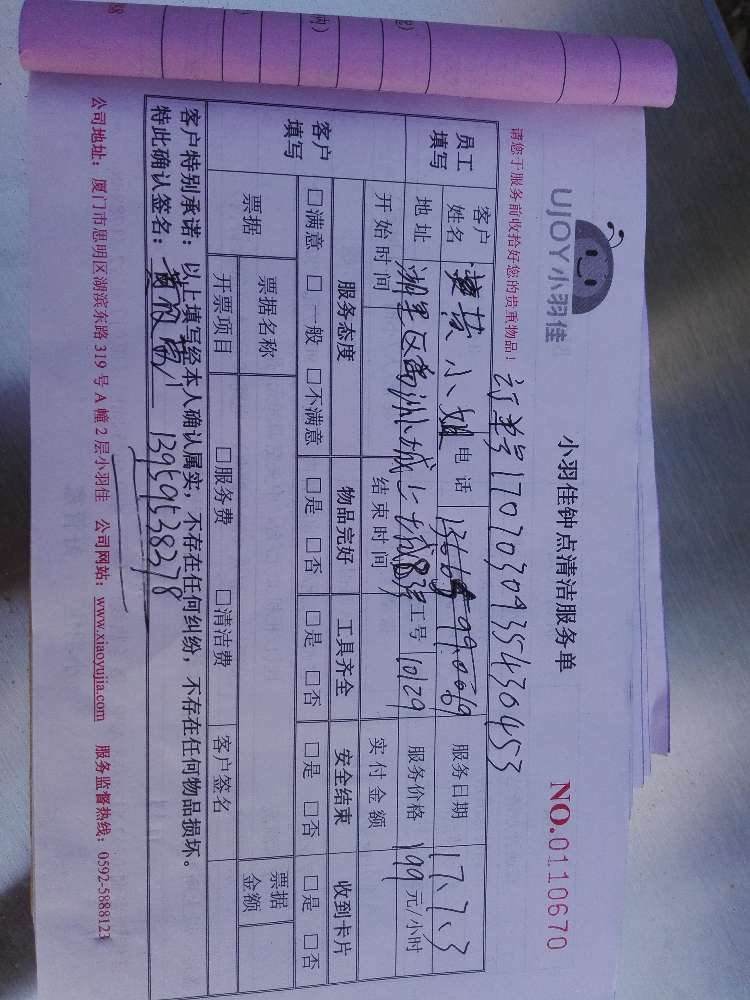 UJOY小羽佳
小羽佳钟点清洁服务单
NO.0110670
请您于服务前收拾好您的贵重物品!
订单号
员工填写 客户姓名 小姐 电话 服务日期 17.7.3
地址 湖里区 工号 10129 服务价格 199 元/小时
开始时间 结束时间 实付金额
客户填写 服务态度 物品完好 工具齐全 安全结束 收到卡片
□满意 □一般 □不满意 □是 □否 □是 □否 □是 □否 □是 □否
票据 票据名称 票据金额
开票项目 □服务费 □清洁费 客户签名
客户特别承诺:以上填写经本人确认属实,不存在任何纠纷,不存在任何物品损坏。
特此确认签名: 13959538378
公司地址:厦门市思明区湖滨东路 319 号 A 幢 2 层小羽佳 公司网站:www.xiaoyujia.com 服务监督热线:0592-5888123